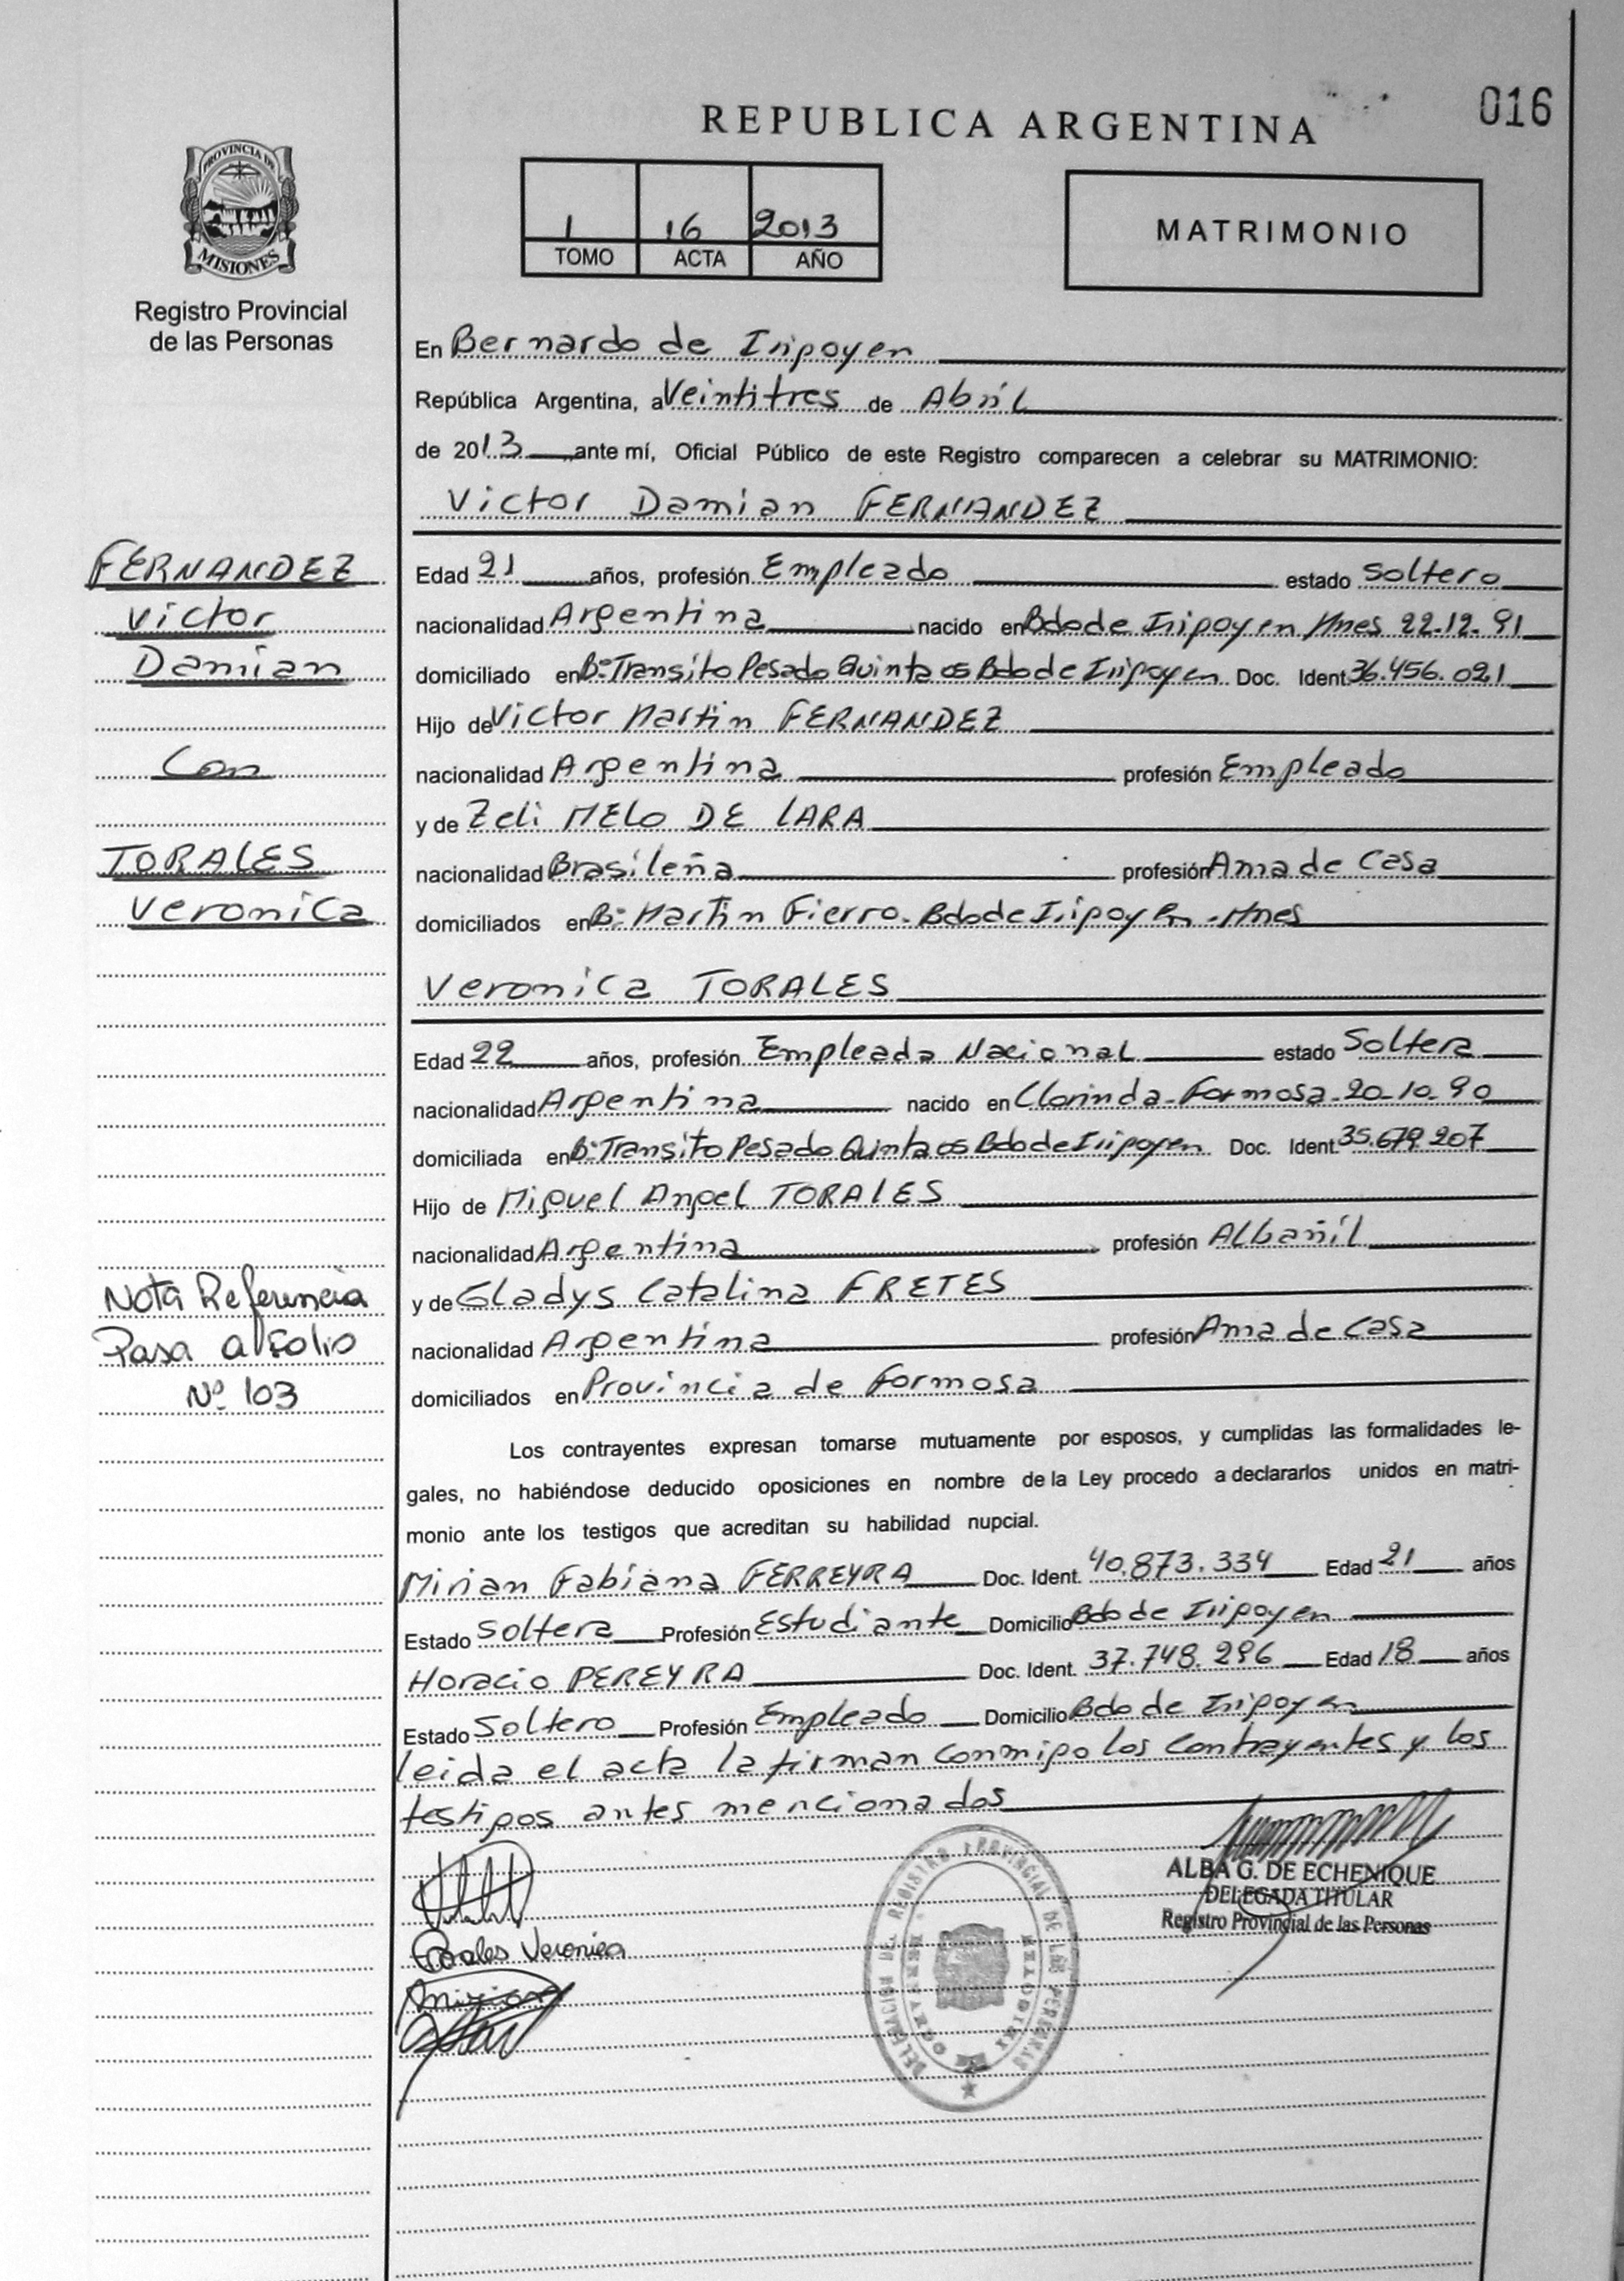 016
REPUBLICA ARGENTINA
PROVINCIA DE
MISIONES
Registro Provincial
de las Personas
1 16 2013
TOMO ACTA AÑO
MATRIMONIO
En Bernardo de Iripoyen
República Argentina, a Veintitres de Abril
de 2013 ante mí, Oficial Público de este Registro comparecen a celebrar su MATRIMONIO:
Victor Damian FERNANDEZ
FERNANDEZ
Victor
Damian
Con
TORALES
Veronica
Edad 21 años, profesión Empleado estado Soltero
nacionalidad Argentina nacido en Bdo de Iripoyen Mnes 22-12-91
domiciliado en Bº Transito Pesado Quinta 05 Bdo de Iripoyen Doc. Ident. 36.456.021
Hijo de Victor Martin FERNANDEZ
nacionalidad Argentina profesión Empleado
y de Zeli MELO DE LARA
nacionalidad Brasileña profesión Ama de Casa
domiciliados en Bº Martin Fierro - Bdo de Iripoyen - Mnes
Veronica TORALES
Edad 22 años, profesión Empleada Nacional estado Soltera
nacionalidad Argentina nacido en Clorinda - Formosa - 20-10-90
domiciliada en Bº Transito Pesado Quinta 05 Bdo de Iripoyen Doc. Ident. 35.679.207
Hijo de Miguel Angel TORALES
nacionalidad Argentina profesión Albañil
y de Gladys Catalina FRETES
nacionalidad Argentina profesión Ama de Casa
domiciliados en Provincia de Formosa
Nota Referencia
Pasa al Folio
Nº 103
Los contrayentes expresan tomarse mutuamente por esposos, y cumplidas las formalidades le-
gales, no habiéndose deducido oposiciones en nombre de la Ley procedo a declararlos unidos en matri-
monio ante los testigos que acreditan su habilidad nupcial.
Mirian Fabiana FERREYRA Doc. Ident. 40.873.334 Edad 21 años
Estado Soltera Profesión Estudiante Domicilio Bdo de Iripoyen
Horacio PEREYRA Doc. Ident. 37.748.296 Edad 18 años
Estado Soltero Profesión Empleado Domicilio Bdo de Iripoyen
leida el acta la firman conmigo los contrayentes y los
testigos antes mencionados
Torales Veronica
ALBA G. DE ECHENIQUE
DELEGADA TITULAR
Registro Provincial de las Personas
DELEGACION DEL REGISTRO PROVINCIAL DE LAS PERSONAS